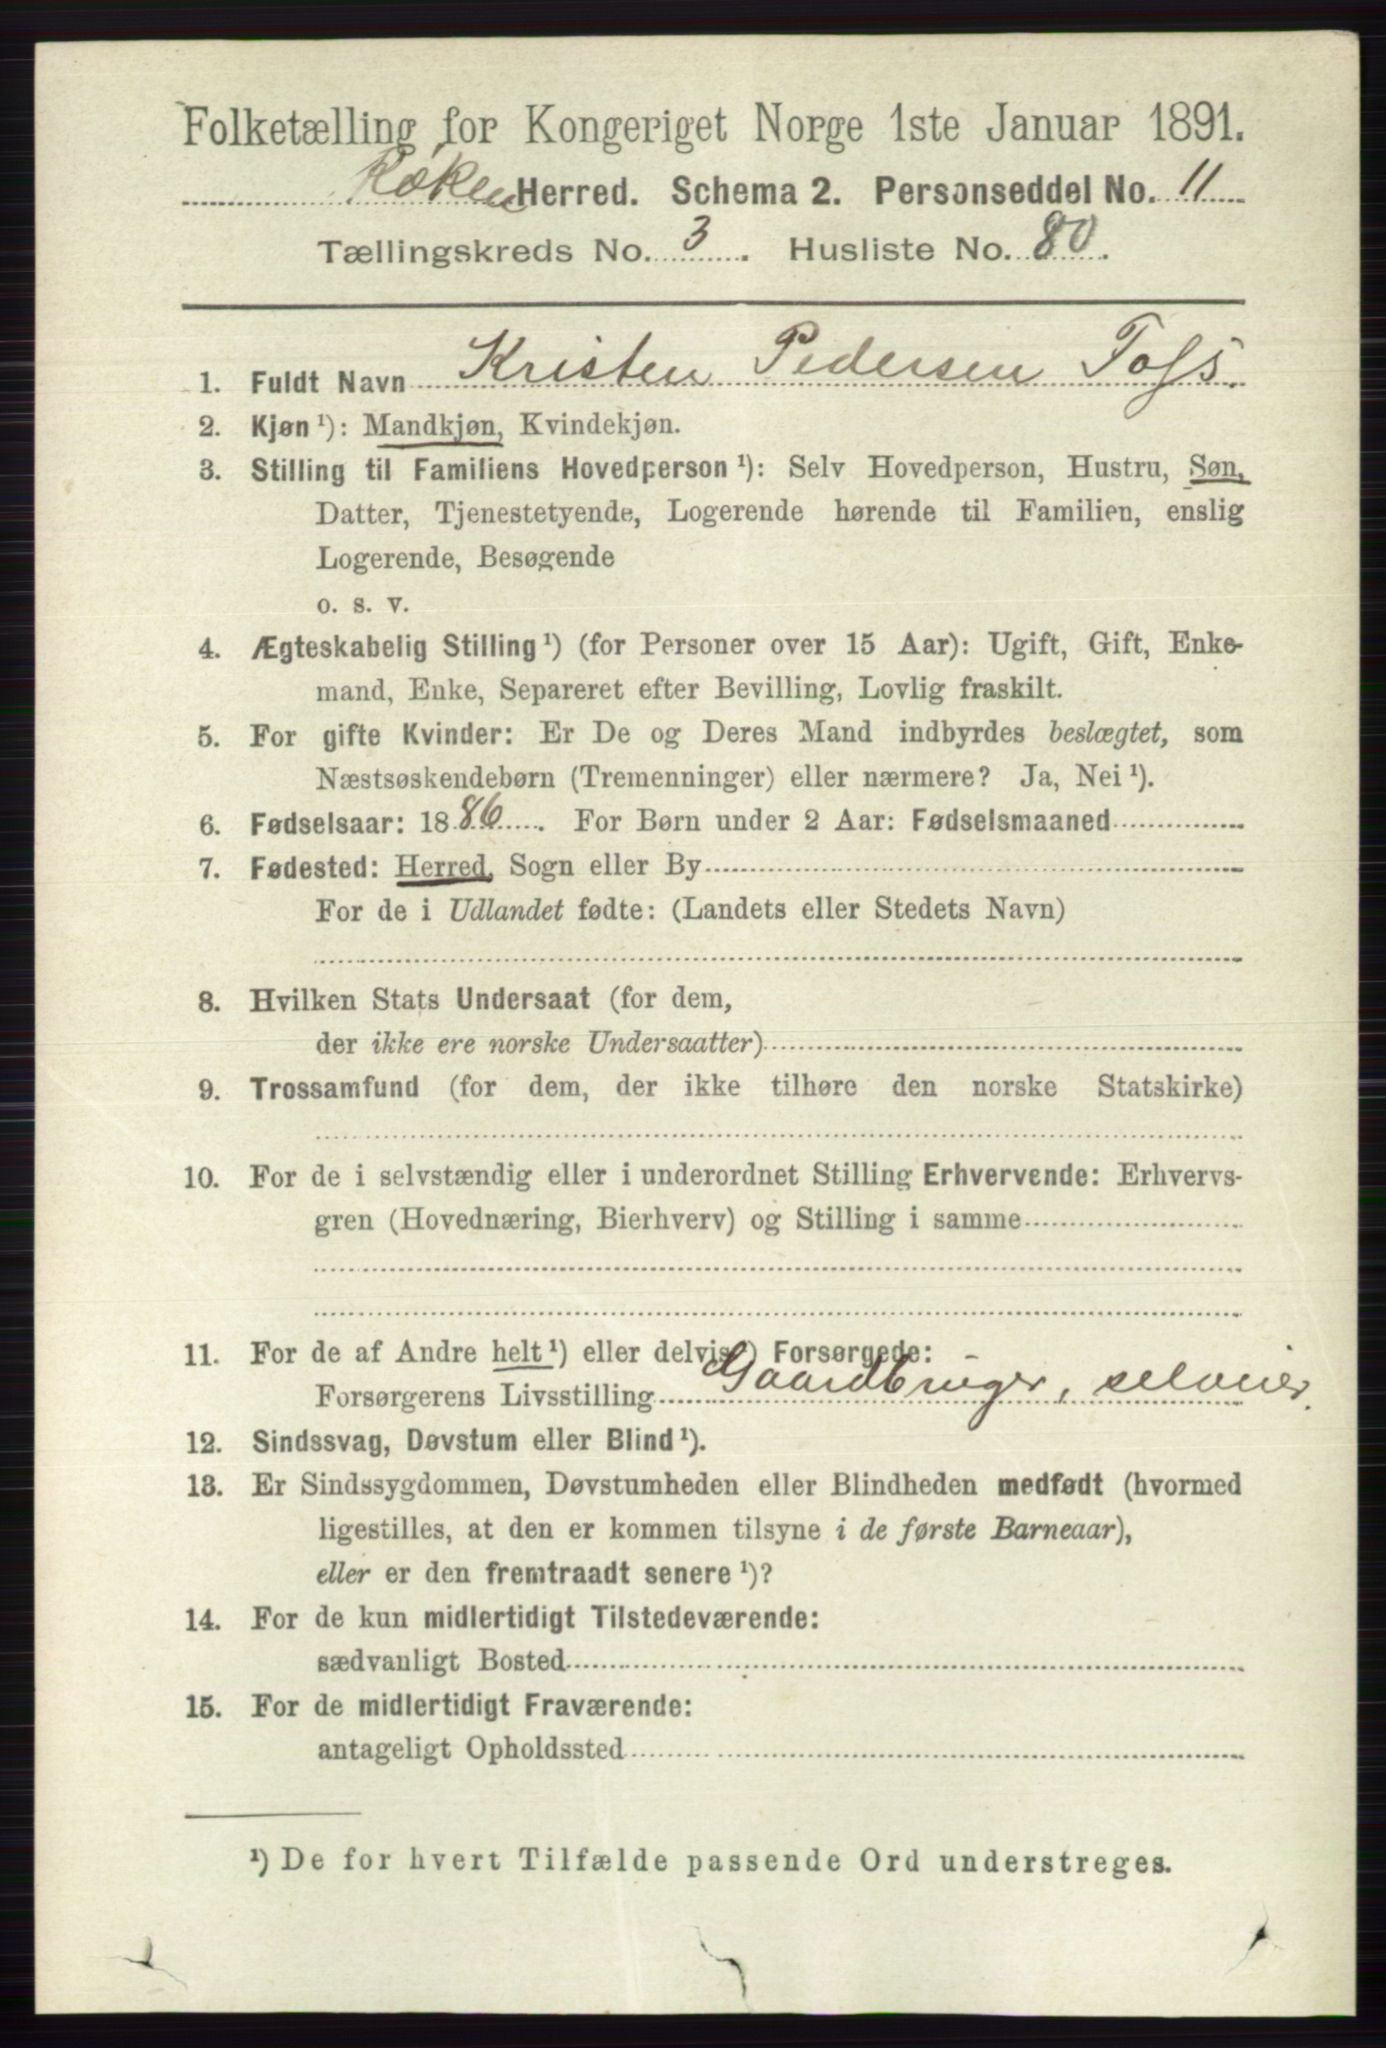 Folketælling for Kongeriget Norge 1ste Januar 1891.
Røken Herred. Schema 2. Personseddel No. 11
Tællingskreds No. 3. Husliste No. 80.
1. Fuldt Navn Kristen Pedersen Tofs.
2. Kjøn ¹): Mandkjøn, Kvindekjøn.
3. Stilling til Familiens Hovedperson ¹): Selv Hovedperson, Hustru, Søn,
Datter, Tjenestetyende, Logerende hørende til Familien, enslig
Logerende, Besøgende
o. s. v.
4. Ægteskabelig Stilling ¹) (for Personer over 15 Aar): Ugift, Gift, Enke-
mand, Enke, Separeret efter Bevilling, Lovlig fraskilt.
5. For gifte Kvinder: Er De og Deres Mand indbyrdes beslægtet, som
Næstsøskendebørn (Tremenninger) eller nærmere? Ja, Nei ¹).
6. Fødselsaar: 1886. For Børn under 2 Aar: Fødselsmaaned
7. Fødested: Herred, Sogn eller By
For de i Udlandet fødte: (Landets eller Stedets Navn)
8. Hvilken Stats Undersaat (for dem,
der ikke ere norske Undersaatter)
9. Trossamfund (for dem, der ikke tilhøre den norske Statskirke)
10. For de i selvstændig eller i underordnet Stilling Erhvervende: Erhvervs-
gren (Hovednæring, Bierhverv) og Stilling i samme
11. For de af Andre helt ¹) eller delvis ¹) Forsørgede:
Forsørgerens Livsstilling Gaardbruger, selveier.
12. Sindssvag, Døvstum eller Blind ¹).
13. Er Sindssygdommen, Døvstumheden eller Blindheden medfødt (hvormed
ligestilles, at den er kommen tilsyne i de første Barneaar),
eller er den fremtraadt senere ¹)?
14. For de kun midlertidigt Tilstedeværende:
sædvanligt Bosted
15. For de midlertidigt Fraværende:
antageligt Opholdssted
¹) De for hvert Tilfælde passende Ord understreges.